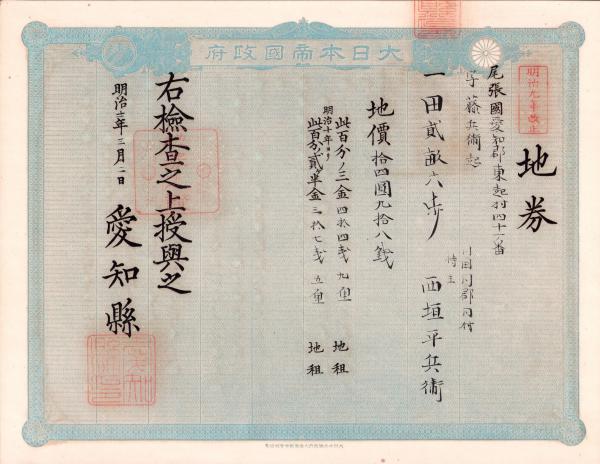 大日本帝國政府
明治九年改正
地券
尾張國愛知郡東起村四十一番
字藤兵衛起
一田貳畝六歩
同國同郡同村
持主
西垣平兵衛
地價拾四圓九拾八錢
此百分ノ三金四拾四錢九厘 地租
明治十年ヨリ
此百分ノ貳半金三拾七錢五厘 地租
右檢査之上授與之
明治十二年三月二日
愛知縣